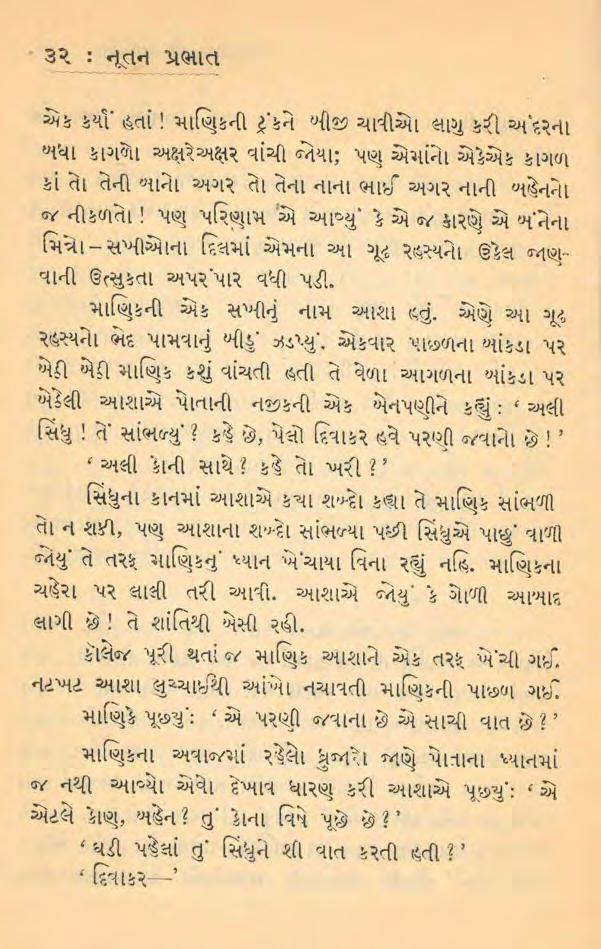 ૩૨ : નૂતન પ્રભાત
એક કર્યાં હતાં ! માણિકની ટ્રંકને બીજી ચાવીઓ લાગુ કરી અંદરના
બધા કાગળો અક્ષરેઅક્ષર વાંચી જોયા; પણ એમાંનો એકેએક કાગળ
કાં તો તેની બાનો અગર તો તેના નાના ભાઈ અગર નાની બહેનનો
જ નીકળતો ! પણ પરિણામ એ આવ્યું કે એ જ કારણે એ બંનેના
મિત્રો – સખીઓના દિલમાં એમના આ ગૂઢ રહસ્યનો ઉકેલ જાણ-
વાની ઉત્સુકતા અપરંપાર વધી પડી.
માણિકની એક સખીનું નામ આશા હતું. એણે આ ગૂઢ
રહસ્યનો ભેદ પામવાનું બીડું ઝડપ્યું. એકવાર પાછળના બાંકડા પર
બેઠી બેઠી માણિક કશું વાંચતી હતી તે વેળા આગળના બાંકડા પર
બેઠેલી આશાએ પોતાની નજીકની એક બેનપણીને કહ્યું : ‘ અલી
સિંધુ ! તેં સાંભળ્યું ? કહે છે, પેલો દિવાકર હવે પરણી જવાનો છે ! ’
‘ અલી કોની સાથે ? કહે તો ખરી ? ’
સિંધુના કાનમાં આશાએ કયા શબ્દો કહ્યા તે માણિક સાંભળી
તો ન શકી, પણ આશાના શબ્દો સાંભળ્યા પછી સિંધુએ પાછું વાળી
જોયું તે તરફ માણિકનું ધ્યાન ખેંચાયા વિના રહ્યું નહિ. માણિકના
ચહેરા પર લાલી તરી આવી. આશાએ જોયું કે ગોળી આબાદ
લાગી છે ! તે શાંતિથી બેસી રહી.
કૉલેજ પૂરી થતાં જ માણિક આશાને એક તરફ ખેંચી ગઈ.
નટખટ આશા લુચ્ચાઈથી આંખો નચાવતી માણિકની પાછળ ગઈ.
માણિકે પૂછ્યું : ‘ એ પરણી જવાના છે એ સાચી વાત છે ? ’
માણિકના અવાજમાં રહેલો ધ્રુજારો જાણે પોતાના ધ્યાનમાં
જ નથી આવ્યો એવો દેખાવ ધારણ કરી આશાએ પૂછ્યું : ‘ એ
એટલે કોણ, બહેન ? તું કોના વિષે પૂછે છે ? ’
‘ ઘડી પહેલાં તું સિંધુને શી વાત કરતી હતી ? ’
‘ દિવાકર—’